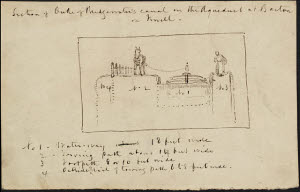 Section of Duke of Bridgewater's canal on the Aqueduct at Barton
on Irwell.
No 4
No 2
No 1
No 3
No 1 Water-way 18 feet wide
2 towing path about 14 feet wide
3 Footpath 8 or 10 feet wide
4 of towing path 6 or 8 feet wide.